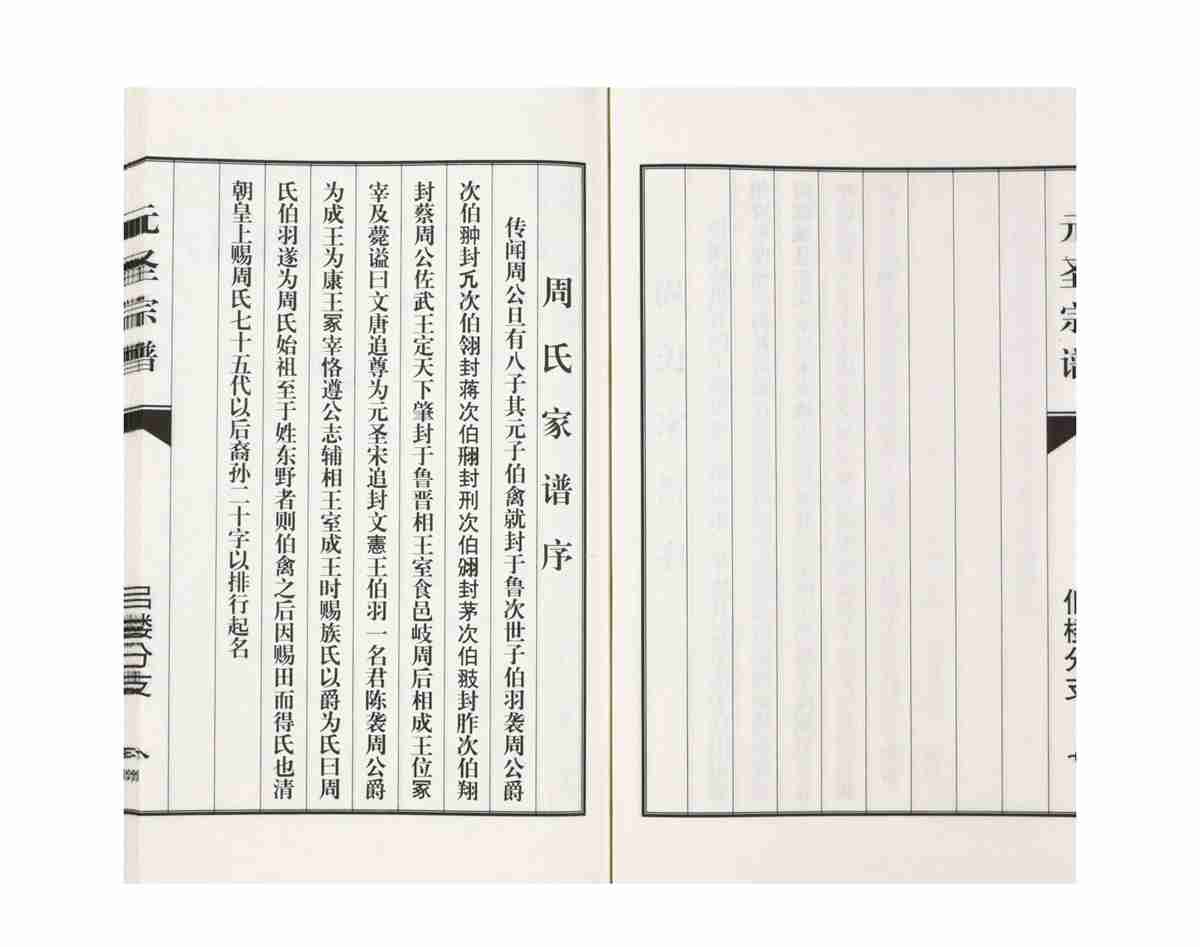 周氏家谱序
传闻周公旦有八子其元子伯禽就封于鲁次世子伯羽袭周公爵
次伯翀封凡次伯翎封蒋次伯翮封刑次伯翊封茅次伯翍封胙次伯翔
封蔡周公佐武王定天下肇封于鲁晋相王室食邑岐周后相成王位冢
宰及薨谥曰文唐追尊为元圣宋追封文憲王伯羽一名君陈袭周公爵
为成王为康王冢宰恪遵公志辅相王室成王时赐族氏以爵为氏曰周
氏伯羽遂为周氏始祖至于姓东野者则伯禽之后因赐田而得氏也清
朝皇上赐周氏七十五代以后裔孙二十字以排行起名
元圣宗谱
楼分支
元圣宗谱
楼分支